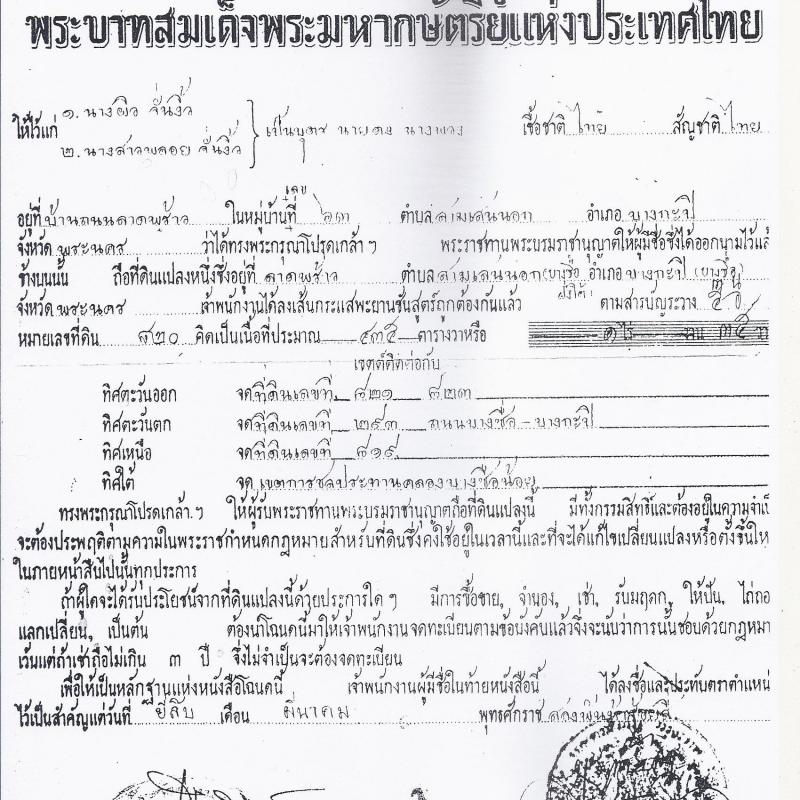 พระบาทสมเด็จพระมหากษัตริย์แห่งประเทศไทย
ให้ไว้แก่ ๑. นางผิว จั่นงิ้ว ๒. นางสาวพลอย จั่นงิ้ว เป็นบุตร นายคง นางพวง เชื้อชาติ ไทย สัญชาติ ไทย
อยู่ที่ บ้านถนนลาดพร้าว ในหมู่บ้านที่ เลข ๖๓ ตำบล สามเสนนอก อำเภอ บางกะปิ
จังหวัด พระนคร ว่าได้ทรงพระกรุณาโปรดเกล้า ฯ พระราชทานพระบรมราชานุญาตให้ผู้มีชื่อซึ่งได้ออกนามไว้แล้
ข้างบนนั้น ถือที่ดินแปลงหนึ่งซึ่งอยู่ที่ ลาดพร้าว ตำบล สามเสนนอก (บางซื่อ ฝั่งใต้) อำเภอ บางกะปิ (บางซื่อ)
จังหวัด พระนคร เจ้าพนักงานได้ลงเส้นกระแสพะยานชันสูตร์ถูกต้องกันแล้ว ตามสารบัญระวาง
หมายเลขที่ดิน ๘๒๐ คิดเป็นเนื้อที่ประมาณ ๔๓๕ ตารางวาหรือ ๑ ไร่ งาน ๓๕ วา
เขตต์ติดต่อกับ
ทิศตะวันออก จด ที่ดินเลขที่ ๘๒๑ ๘๒๓
ทิศตะวันตก จด ที่ดินเลขที่ ๒๙๓ ถนนบางซื่อ - บางกะปิ
ทิศเหนือ จด ที่ดินเลขที่ ๘๑๙
ทิศใต้ จด เขตการชลประทานคลองบางซื่อน้อย
ทรงพระกรุณาโปรดเกล้า ฯ ให้ผู้รับพระราชทานพระบรมราชานุญาตถือที่ดินแปลงนี้ มีทั้งกรรมสิทธิ์และต้องอยู่ในความจำเป็
จะต้องประพฤติตามความในพระราชกำหนดกฎหมายสำหรับที่ดินซึ่งคงใช้อยู่ในเวลานี้และที่จะได้แก้ไขเปลี่ยนแปลงหรือตั้งขึ้นให
ในภายหน้าสืบไปนั้นทุกประการ
ถ้าผู้ใดจะได้รับประโยชน์จากที่ดินแปลงนี้ด้วยประการใด ๆ มีการซื้อขาย, จำนอง, เช่า, รับมฤดก, ให้ปัน, ไถ่ถอ
แลกเปลี่ยน, เป็นต้น ต้องนำโฉนดนี้มาให้เจ้าพนักงานจดทะเบียนตามข้อบังคับแล้วจึ่งจะนับว่าการนั้นชอบด้วยกฎหมา
เว้นแต่ถ้าเช่าถือไม่เกิน ๓ ปี จึ่งไม่จำเป็นจะต้องจดทะเบียน
เพื่อให้เป็นหลักฐานแห่งหนังสือโฉนดนี้ เจ้าพนักงานผู้มีชื่อในท้ายหนังสือนี้ ได้ลงชื่อและประทับตราตำแหน่
ไว้เป็นสำคัญแต่วันที่ ยี่สิบ เดือน มีนาคม พุทธศักราช